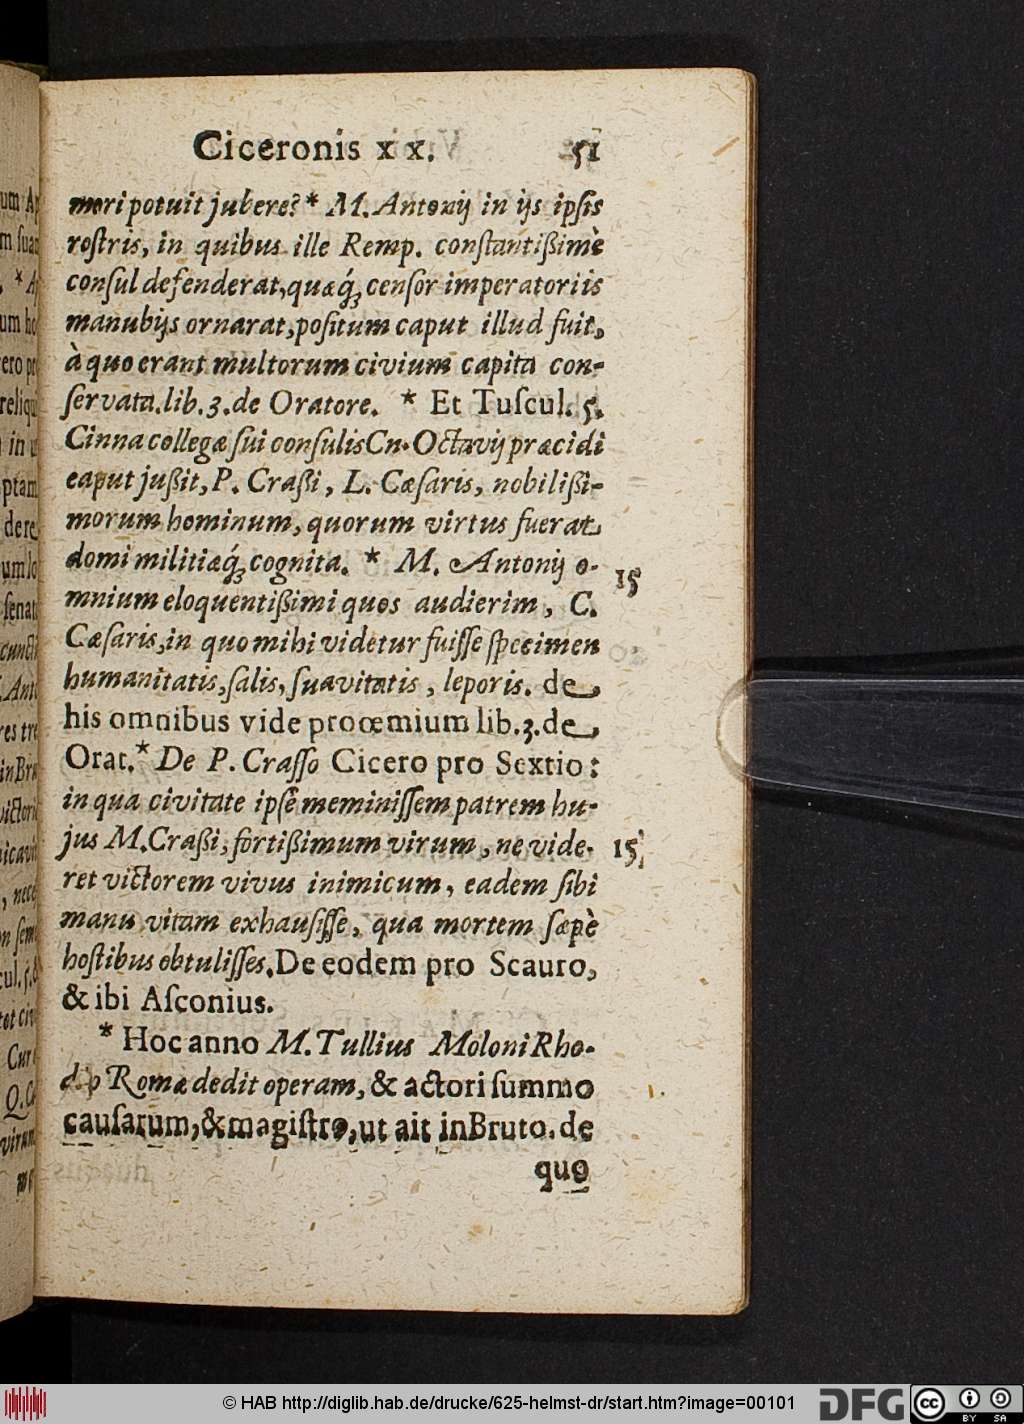 Ciceronis x x. 51
mori potuit jubere? * M. Antonij in ijs ipſis
roſtris, in quibus ille Remp. conſtantißimè
conſul defenderat, quæq́; cenſor imperatoriis
manubijs ornarat, poſitum caput illud fuit,
à quo erant multorum civium capita con-
ſervata. lib. 3. de Oratore. * Et Tuſcul. 5.
Cinna collegæ ſui conſulis Cn. Octavij præcidi
caput jußit, P. Craßi, L. Cæſaris, nobilißi-
morum hominum, quorum virtus fuerat
domi militiæq́; cognita. * M. Antonij o-
15
mnium eloquentißimi quos audierim, C.
Cæſaris, in quo mihi videtur fuiſſe ſpecimen
humanitatis, ſalis, ſuavitatis, leporis. de
his omnibus vide proœmium lib. 3. de
Orat. * De P. Craſſo Cicero pro Sextio:
in qua civitate ipſe meminiſſem patrem hu-
jus M. Craßi, fortißimum virum, ne vide- 15
ret victorem vivus inimicum, eadem ſibi
manu vitam exhauſiſſe, qua mortem ſæpè
hoſtibus obtuliſſes. De eodem pro Scauro,
& ibi Aſconius.
* Hoc anno M. Tullius Moloni Rho-
dio Romæ dedit operam, & actori ſummo
cauſarum, & magiſtro, ut ait in Bruto. de
quo
© HAB http://diglib.hab.de/drucke/625-helmst-dr/start.htm?image=00101
DFG
cc BY SA